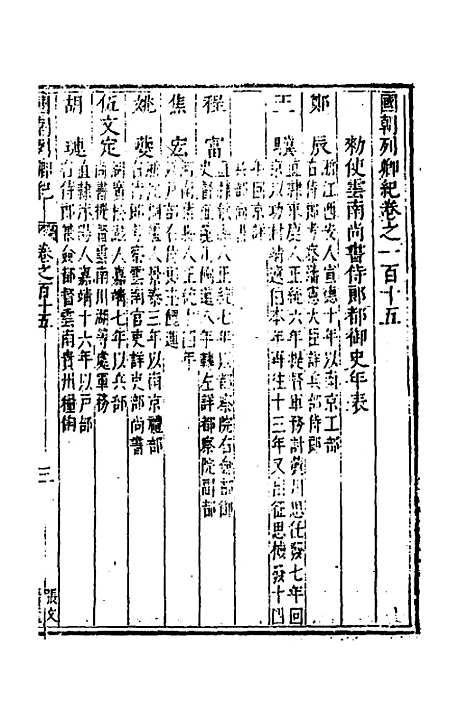 國朝列卿紀卷之一百十五
勑使雲南尚書侍郎都御史年表
鄭辰 浙江西安人宣德十年以南京工部
右侍郎考察藩憲大臣詳兵部侍郎
王驥 直隸束鹿人正統六年提督軍務計
京以功封靖遠伯本年再往十三年又往征思機發十四
年回京詳
兵部尚書
程富 直隸歙縣人正統七年以都察院右僉都御
史 八年轉左詳都察院副都
焦宏 河南葉縣人正統 年
以戶部 侍 餽運
姚夔 浙江桐廬人景泰三年以南京禮部
右侍郎考察雲南官吏詳吏部尚書
伍文定 湖廣松滋人嘉靖七年以兵部
尚書提督雲南川湖等處軍務
胡璉 直隸沭陽人嘉靖十六年以戶部
右侍郎兼僉都督雲南貴州糧餉
國朝列卿紀 卷之百十五
張文